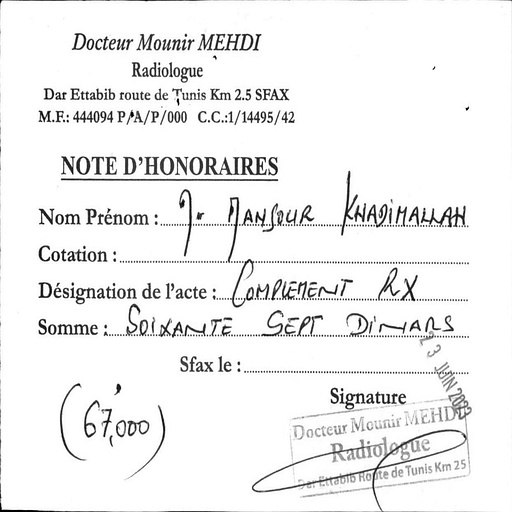 Docteur Mounir MEHDI
Radiologue
Dar Ettabib route de Tunis Km 2.5 SFAX
M.F.: 444094 P/A/P/000 C.C.:1/14495/42
NOTE D'HONORAIRES
Nom Prénom : Mr MANSOUR KHADIMALLAH
Cotation :
Désignation de l'acte : COMPLEMENT RX
Somme : SOIXANTE SEPT DINARS
Sfax le :
23 JUIN 2023
Signature
(67,000)
Docteur Mounir MEHDI
Radiologue
Dar Ettabib Route de Tunis Km 25